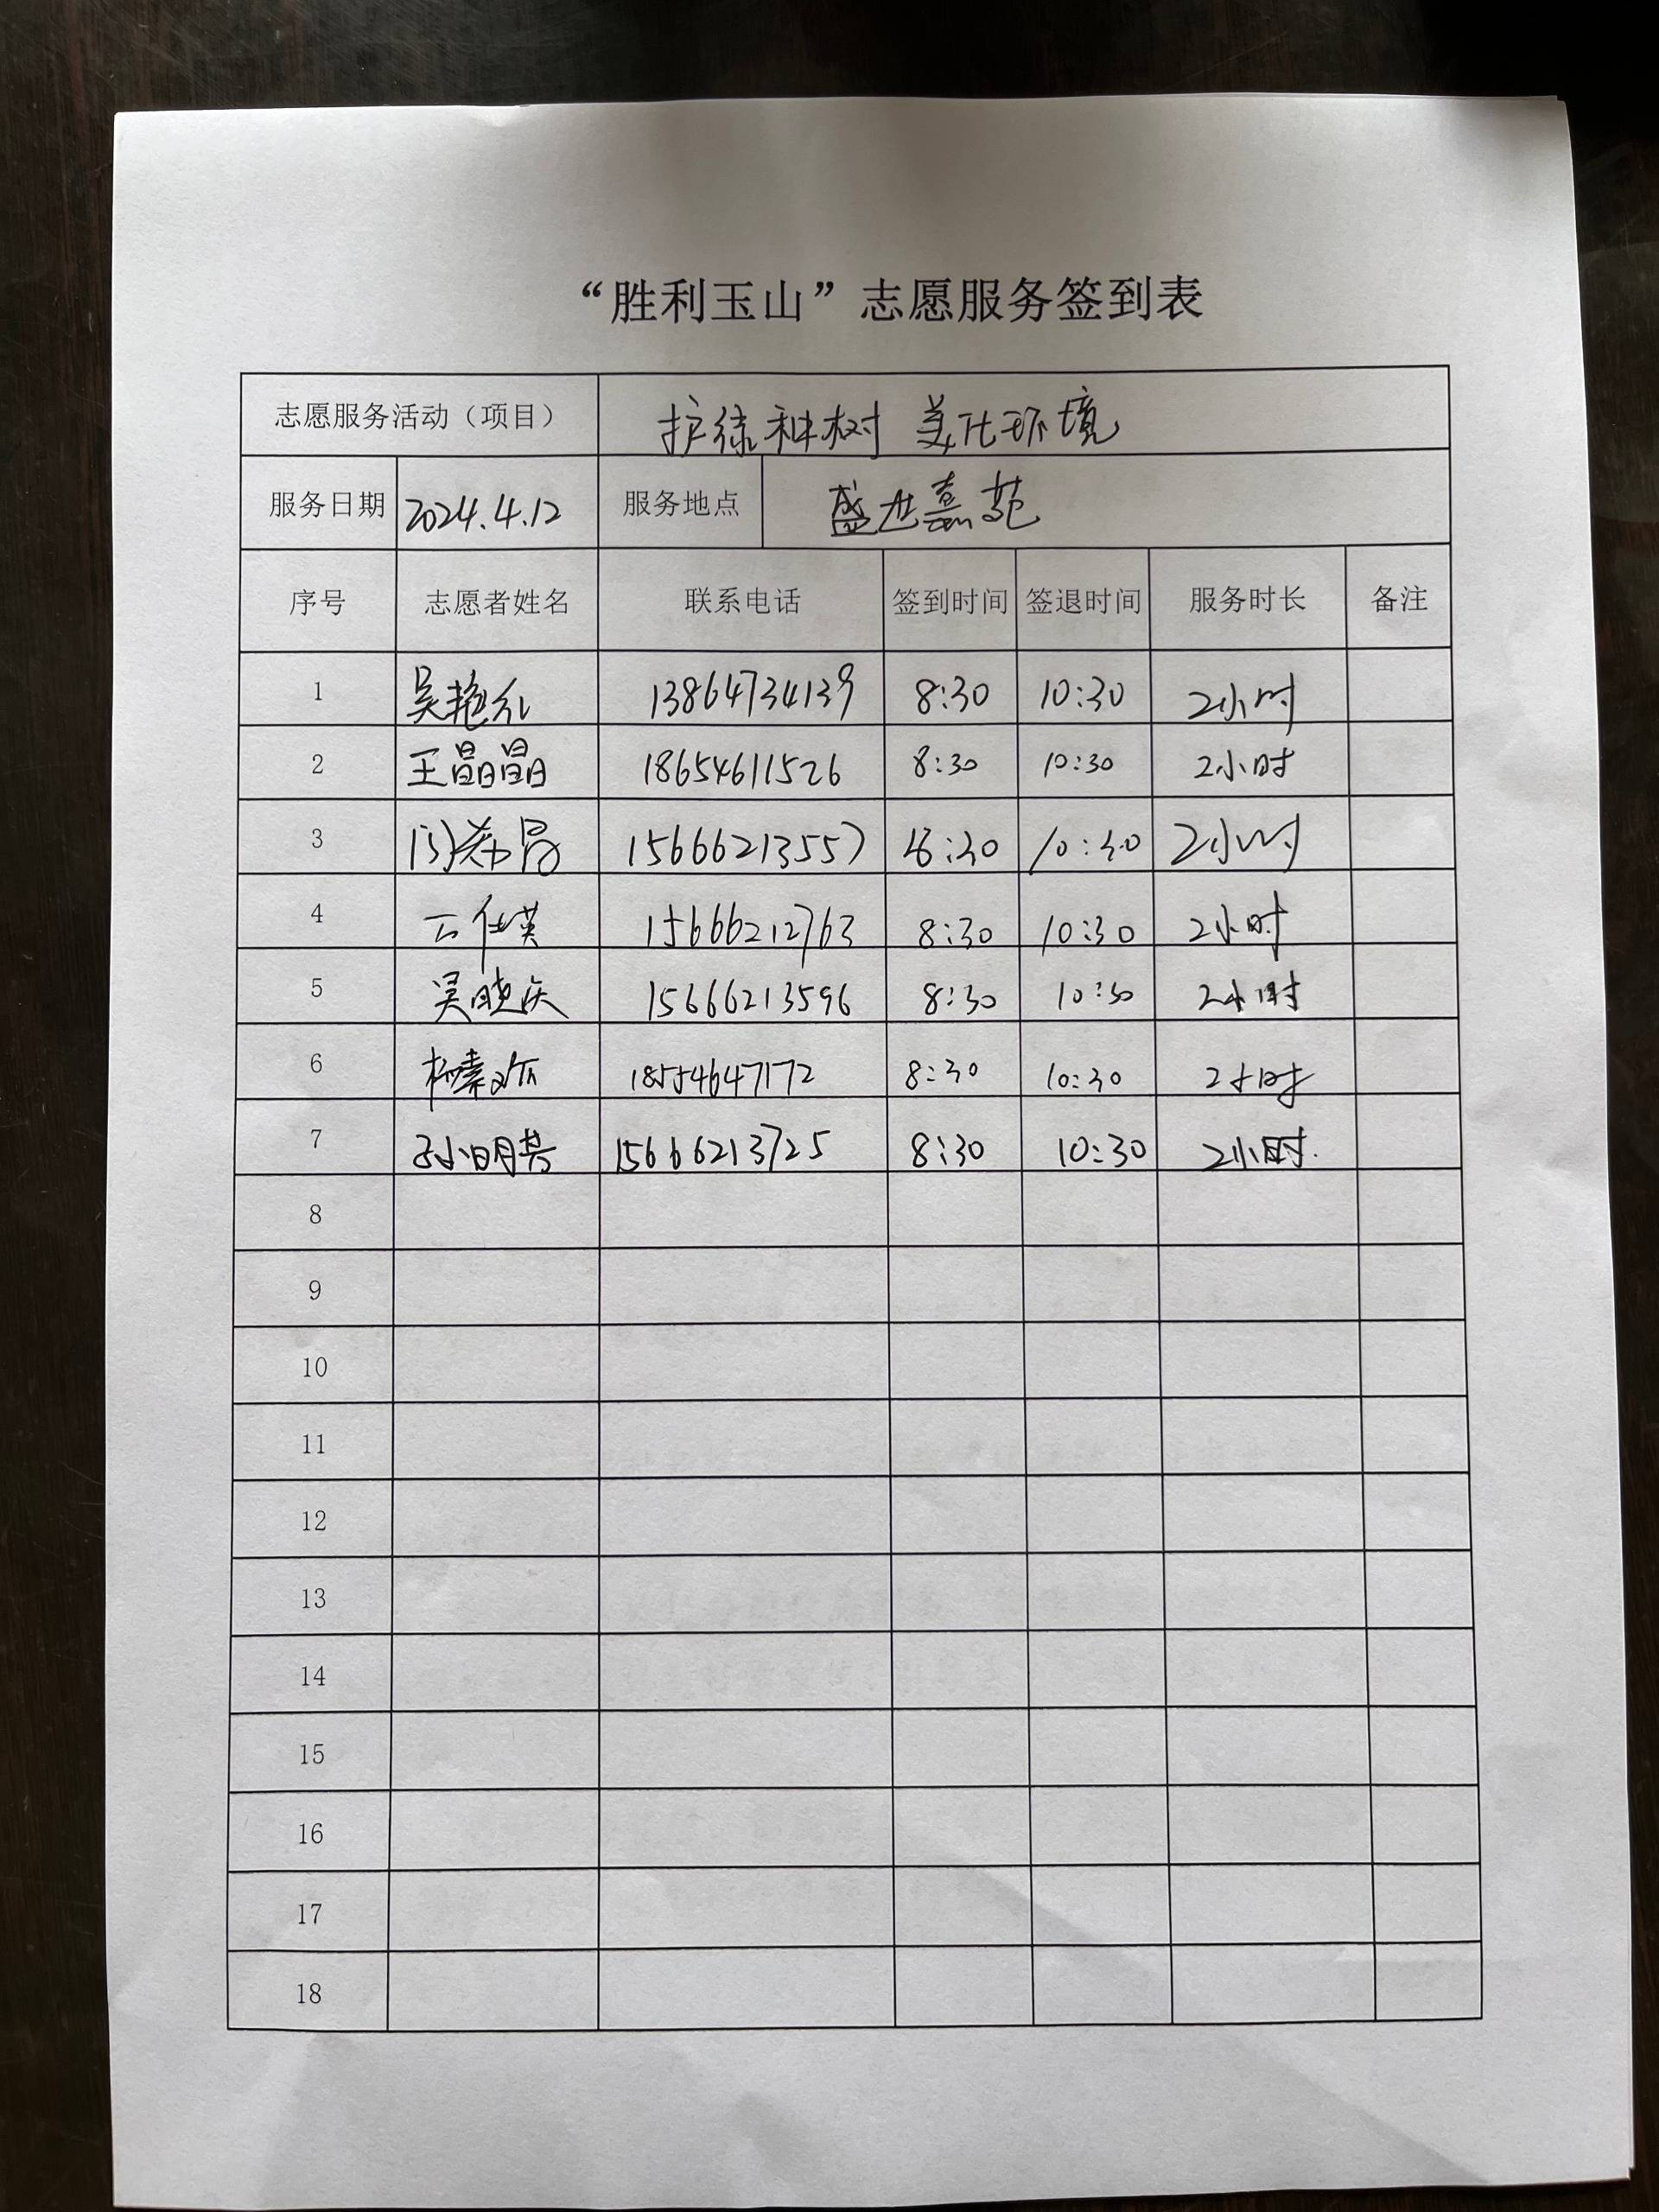 “胜利玉山”志愿服务签到表
志愿服务活动（项目） 护绿种树 美化环境
服务日期 2024.4.12 服务地点 盛世嘉苑
序号 志愿者姓名 联系电话 签到时间 签退时间 服务时长 备注
1 吴艳 13864734139 8:30 10:30 2小时
2 王晶晶 18654611526 8:30 10:30 2小时
3 15666213557 8:30 10:30 2小时
4 15666212763 8:30 10:30 2小时
5 吴晓庆 15666213596 8:30 10:30 2小时
6 杨素 18554647172 8:30 10:30 2小时
7 孙明 15666213725 8:30 10:30 2小时.
8
9
10
11
12
13
14
15
16
17
18